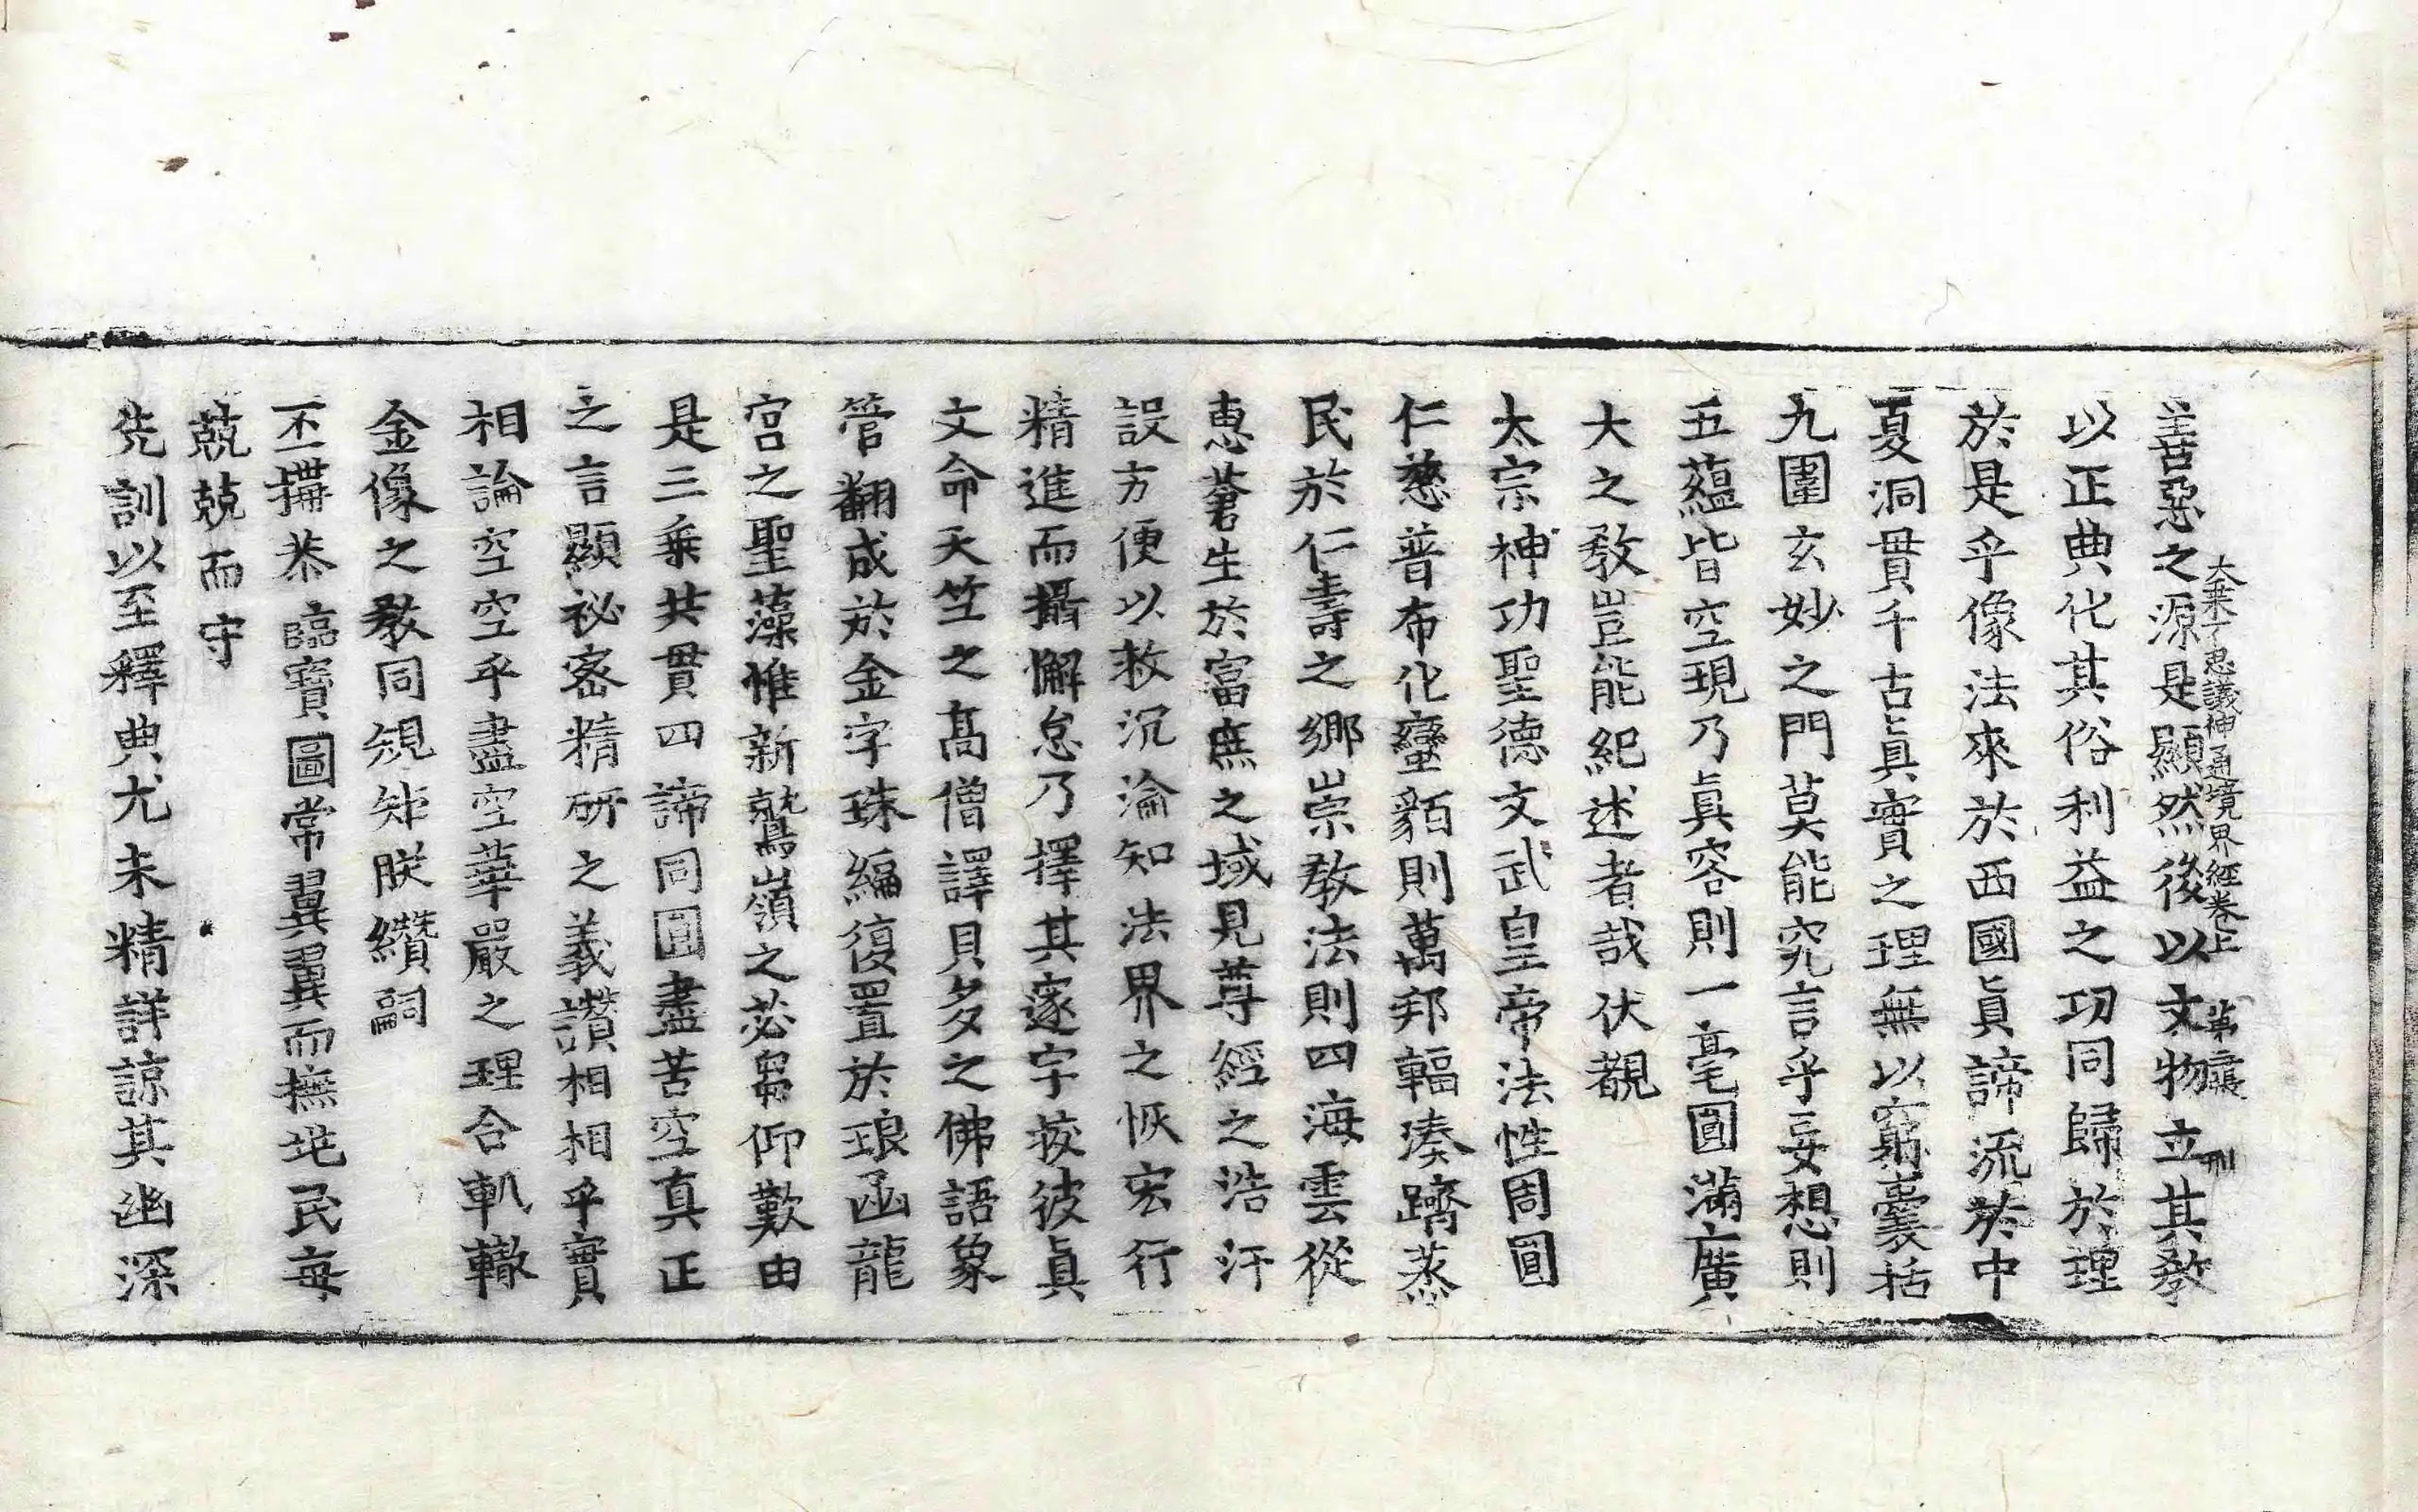 主苦惡之源是顯然後以文物立其敎
大乘不思議神通境界經卷上
以正典化其俗利益之功同歸於理
於是乎像法來於西國眞諦流於中
夏洞貫千古眞實之理無以窮囊括
九圍玄妙之門莫能究言乎妄想則
五蘊皆空現乃眞容則一毫圓滿廣
大之敎豈能紀述者哉伏覩
太宗神功聖德文武皇帝法性周圓
仁慈普布化蠻貊則萬邦輻湊躋蒸
民於仁壽之鄉崇敎法則四海雲從
惠蒼生於富庶之域見尊經之浩汗
設方便以救沉淪知法界之恢宏行
精進而攝懈怠乃擇其邃宇挍彼眞
文命天竺之髙僧譯貝多之佛語象
管翻成於金字珠編復置於琅函龍
宫之聖藻惟新鷲嶺之苾蒭仰歎由
是三乗共貫四諦同圓盡苦空真正
之言顯祕宻精研之義讚相相乎實
相論空空乎盡空華嚴之理合軌轍
金像之敎同規矩朕纘嗣
丕搆恭臨寶圖常翼翼而撫民每
兢兢而守
先訓以至釋典尤未精詳諒其幽深